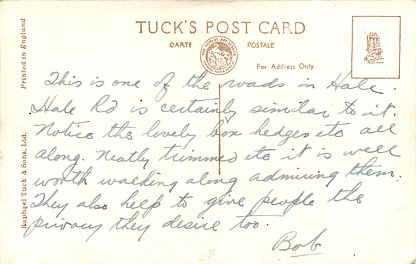 TUCK'S POST CARD
CARTE POSTALE
For Address Only
Printed in England
Raphael Tuck & Sons, Ltd.
This is one of the roads in Hale.
Hale Rd is certainly similar to it.
Notice the lovely box hedges etc all
along. Neatly trimmed etc it is well
worth walking along admiring them.
They also help to give people the
privacy they desire too.
Bob